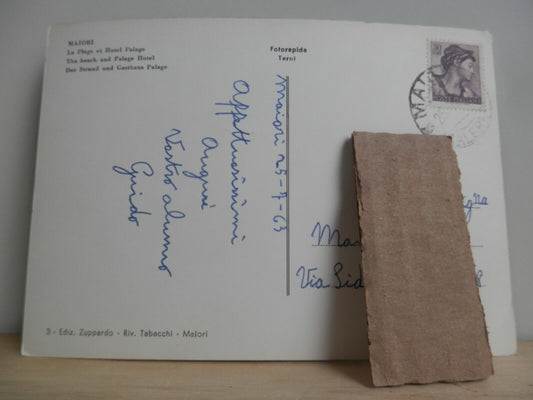 MAIORI
La Plage et Hotel Palage
The beach and Palage Hotel
Der Strand und Gasthaus Palage
Fotorapida
Terni
30
POSTE ITALIANE
Maiori 25-7-63
Affettuosissimi
Auguri
Vostro alunno
Guido
Via Sid
8
3 - Ediz. Zuppardo - Riv. Tabacchi - Maiori